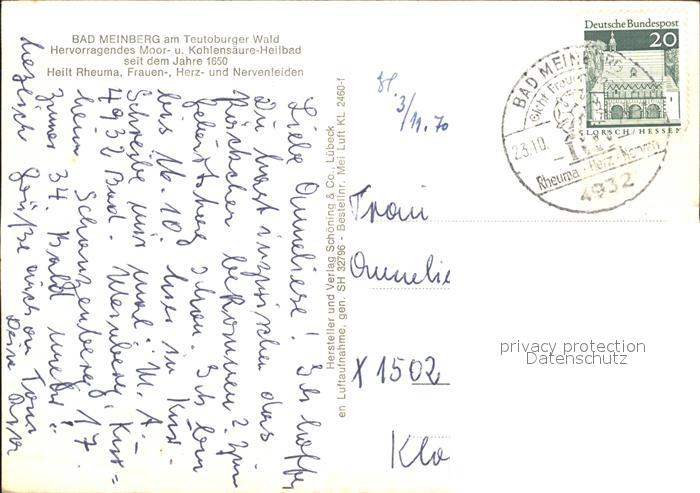 BAD MEINBERG am Teutoburger Wald
Hervorragendes Moor- u. Kohlensäure-Heilbad
seit dem Jahre 1650
Heilt Rheuma, Frauen-, Herz- und Nervenleiden
Liebe Anneliese! Ich hoffe
Du hast inzwischen das
bekommen z. zum
Geburtstag schon. Ich bin
bis 16.10. hier in Kur.
Schreibe mir mal. N. A.:
4932 Bad - Meinberg, Kur=
heim Schanzenberg, 17
Zimmer 34. Bald mehr!
herzlich Grüße auch an
Deine
Hersteller und Verlag Schöning & Co., Lübeck
en Luftaufnahme, gen. SH 32796 - Bestellnr. Mei Luft KL 2460-f
3/11.70
Deutsche Bundespost
20
LORSCH/HESSEN
BAD MEINBERG
23.10.
Rheuma-Herz-Nerven
4932
Frau
Annelie
X 1502
Klo
privacy protection
Datenschutz